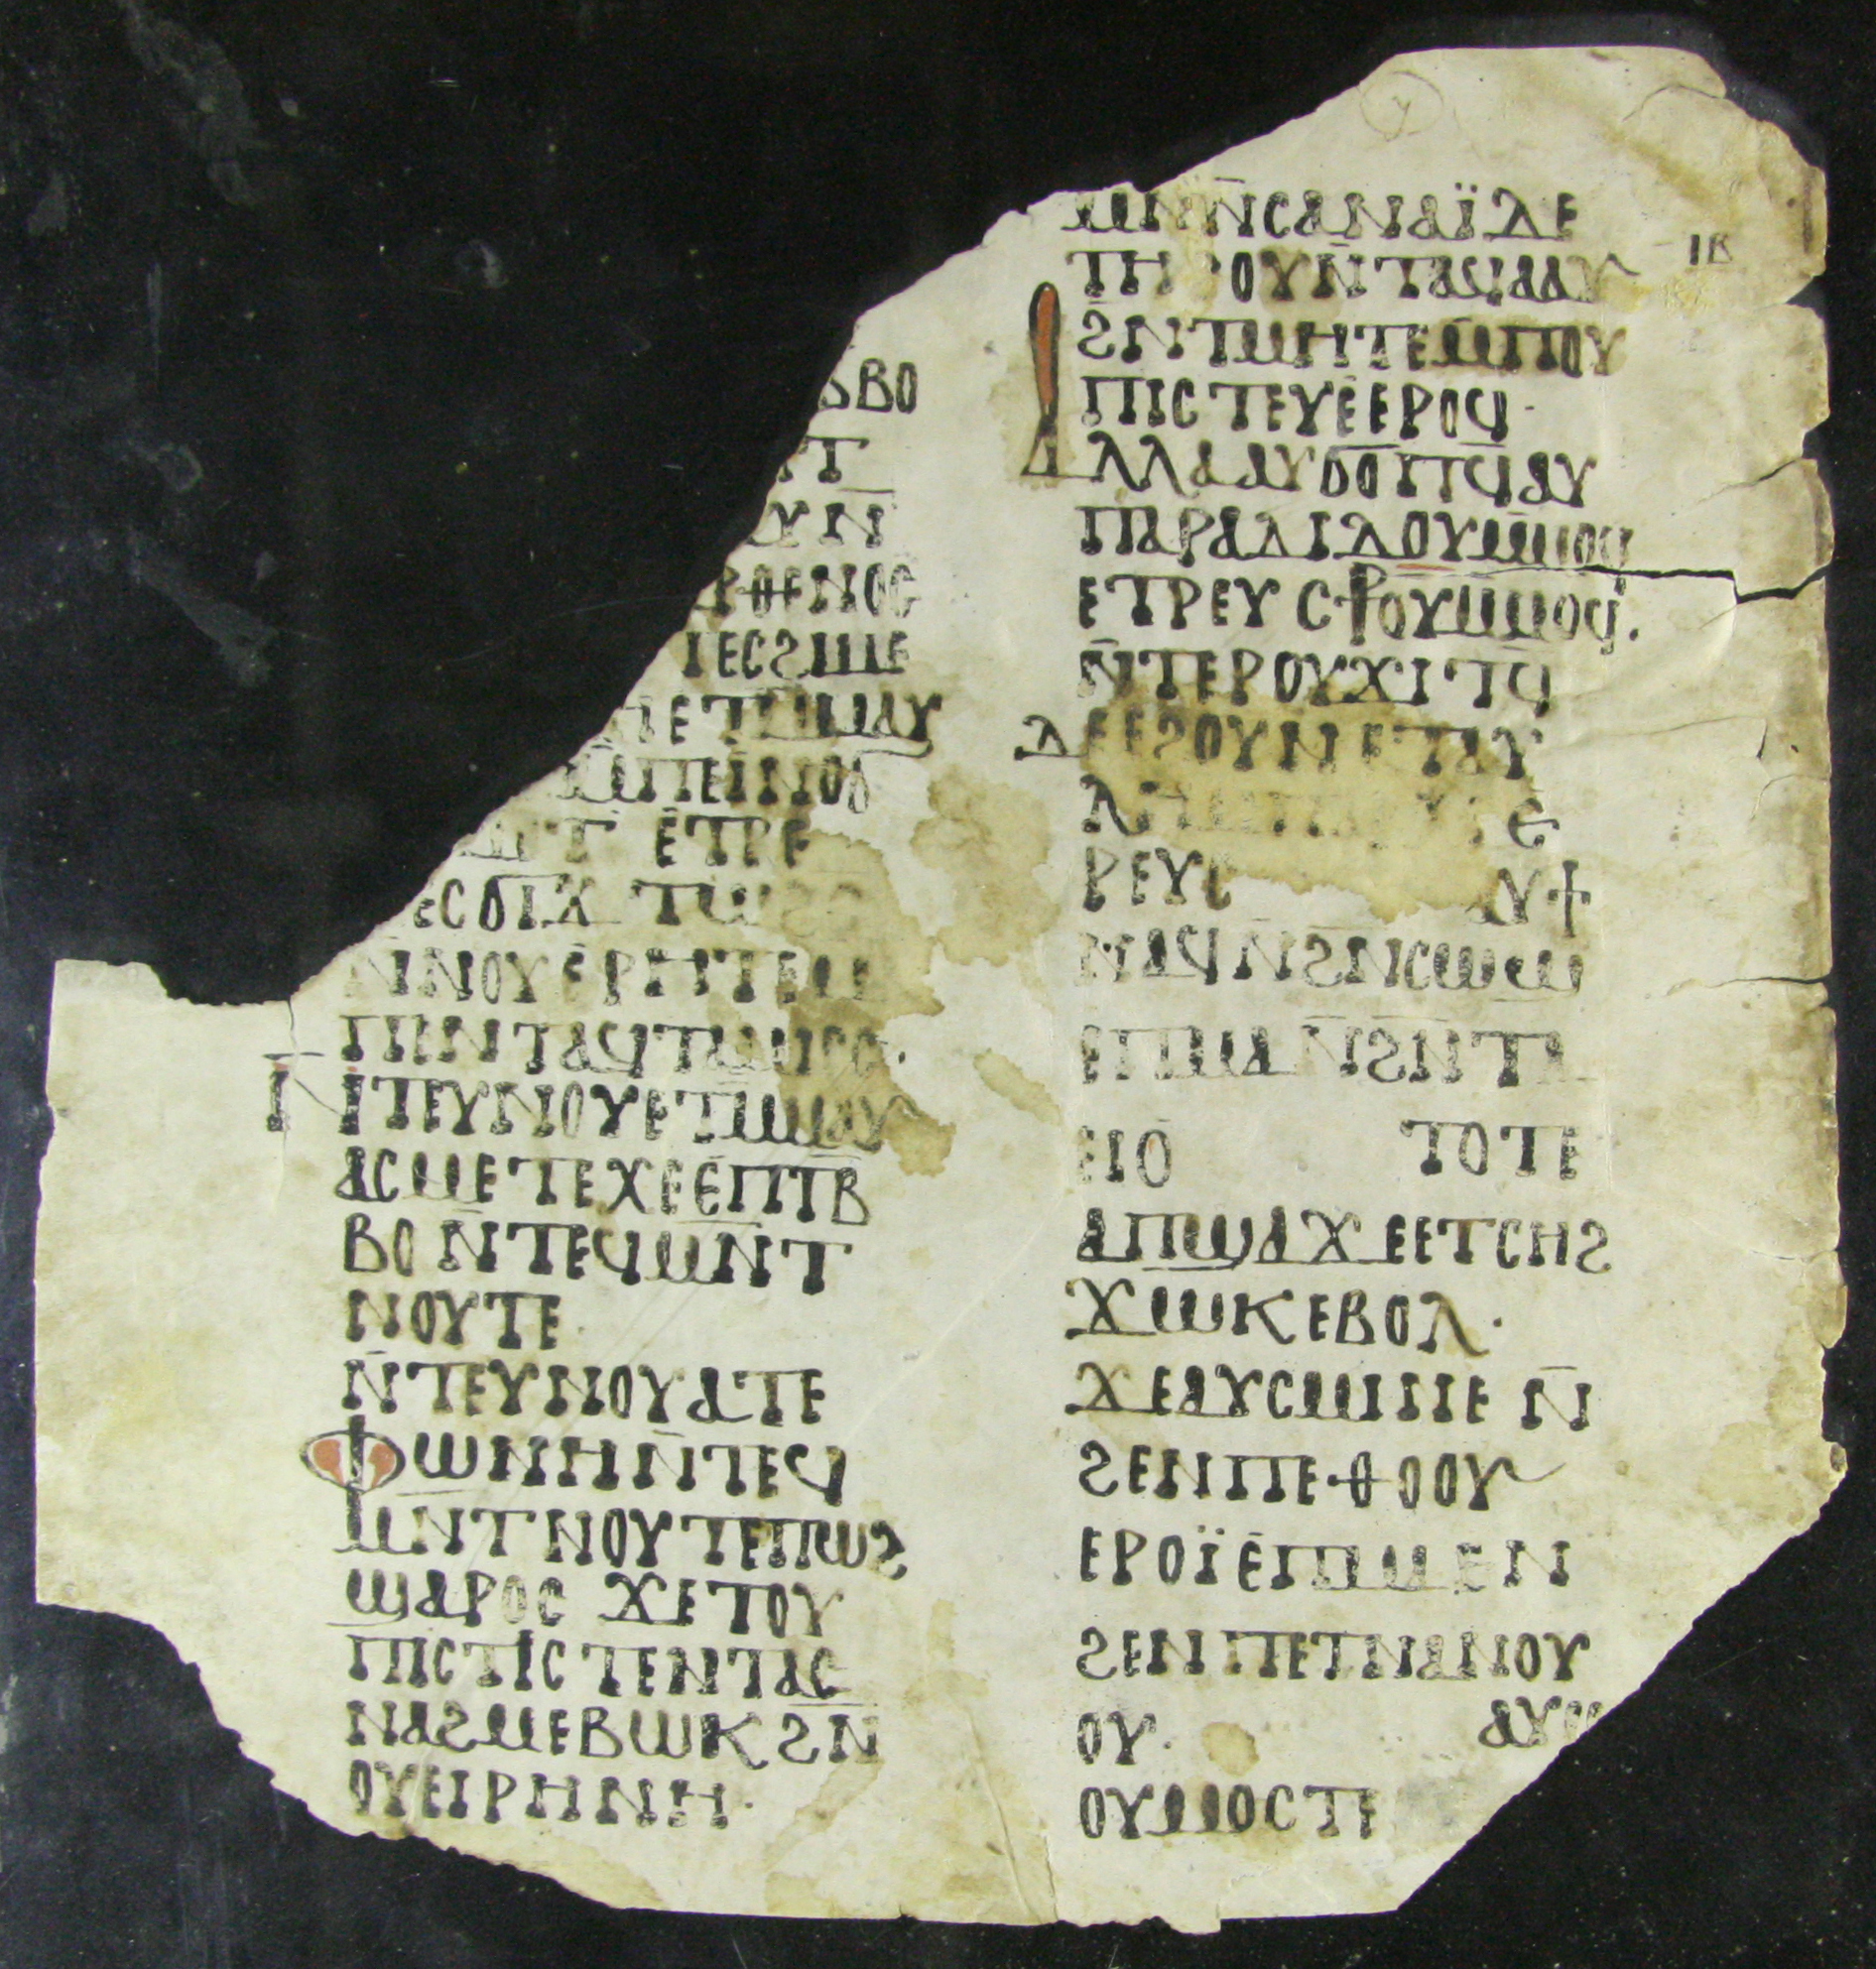 ⲃⲃⲟ
ⲩⲛ
ⲣⲑⲉⲛⲟⲥ
ⲧⲉⲥϩⲓⲙⲉ
ⲉⲧⲙⲙⲁⲩ
ⲙⲡⲉⲓⲛⲟϭ
ⲉⲧⲣⲉ
ⲉⲥϭⲓϫ ⲧⲱ
ⲛⲛⲟⲩⲉⲣⲏⲧⲉ ⲙ
ⲡⲉⲛⲧⲁϥⲧⲁⲙⲓⲟⲥ·
ⲛ̄ⲧⲉⲩⲛⲟⲩ ⲉⲧⲙⲙⲁⲩ
ⲁⲥⲙⲉⲧⲉⲭⲉ ⲉⲡⲧⲃ
ⲃⲟ ⲛ̄ⲧⲉϥⲙⲛⲧ
ⲛⲟⲩⲧⲉ
ⲛ̄ⲧⲉⲩⲛⲟⲩ ⲁⲧⲉ
ⲫⲱⲛⲏ ⲛ̄ⲧⲉϥ
ⲙⲛⲧⲛⲟⲩⲧⲉ ⲡⲱϩ
ϣⲁⲣⲟⲥ ϫⲉ ⲧⲟⲩ
ⲡⲓⲥⲧⲓⲥ ⲧⲉⲛⲧⲁⲥ
ⲛⲁϩⲙⲉ ⲃⲱⲕ ϩⲛ̄
ⲟⲩⲉⲓⲣⲏⲛⲏ·
ⲙⲛⲛ̄ⲥⲁ ⲛⲁⲓ̈ ⲇⲉ
ⲧⲏⲣⲟⲩ ⲛ̄ⲧⲁϥⲁⲁⲩ
ϩⲛ ⲧⲙⲏⲧⲉ ⲙⲡⲟⲩ
ⲡⲓⲥⲧⲉⲩⲉ ⲉⲣⲟϥ·
ⲁⲗⲗⲁ ⲁⲩϭⲟⲡϥ ⲁⲩ
ⲡⲁⲣⲁⲇⲓⲇⲟⲩ ⲙⲙⲟϥ
ⲉⲧⲣⲉⲩⲥⳁⲟⲩ ⲙⲙⲟϥ·
ⲛ̄ⲧⲉⲣⲟⲩϫⲓⲧϥ
ⲇⲉ ⲉϩⲟⲩⲛ ⲉⲧⲁⲩ
ⲣⲉⲩⲥ ⲁⲩϯ
ⲛⲁϥ ⲛ̄ϩⲛ̄ⲥⲱϣ
ⲉⲡⲙⲁ ⲛ̄ϩⲛ̄ⲧⲁ
ⲉⲓⲟ ⲧⲟⲧⲉ
ⲁⲡϣⲁϫⲉ ⲉⲧⲥⲏϩ
ϫⲱⲕ ⲉⲃⲟⲗ·
ϫⲉ ⲁⲩⲥⲙⲓⲛⲉ ⲛ̄
ϩⲉⲛⲡⲉⲑⲟⲟⲩ
ⲉⲣⲟⲓ̈ ⲉⲡⲙⲁ ⲉⲛ
ϩⲉⲛⲡⲉⲧⲛⲁⲛⲟⲩ
ⲟⲩ· ⲁⲩⲱ
ⲟⲩⲙⲟⲥⲧⲉ
ⲓⲃ